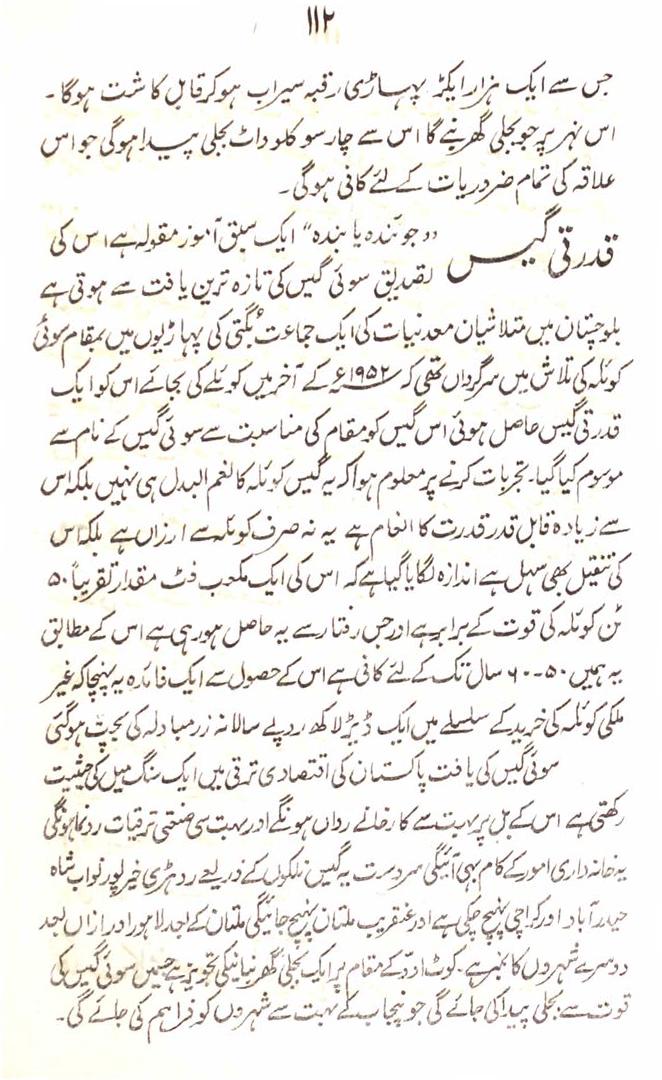 ۱۱۲
جس سے ایک ہزار ایکڑ پہاڑی رقبہ سیراب ہو کر قابل کاشت ہوگا۔
اس نہر پر جو بجلی گھر بنے گا اس سے چار سو کلو واٹ بجلی پیدا ہوگی جو اس
علاقہ کی تمام ضروریات کے لئے کافی ہوگی۔
قدرتی گیس
"جوئندہ یابندہ" ایک سبق آموز مقولہ ہے اس کی
تصدیق سوئی گیس کی تازہ ترین یافت سے ہوتی ہے
بلوچستان میں متلاشیان معدنیات کی ایک جماعت بُگتی کی پہاڑیوں میں بمقام سوئی
کوئلہ کی تلاش میں سرگرداں تھی کہ ۱۹۵۲ء کے آخر میں کوئلے کی بجائے اس کو ایک
قدرتی گیس حاصل ہوئی اس گیس کو مقام کی مناسبت سے سوئی گیس کے نام سے
موسوم کیا گیا۔ تجربات کرنے پر معلوم ہوا کہ یہ گیس کوئلہ کا نعم البدل ہی نہیں بلکہ اس
سے زیادہ قابل قدر قدرت کا انعام ہے یہ نہ صرف کوئلہ سے ارزاں ہے بلکہ اس
کی تنقیل بھی سہل ہے اندازہ لگایا گیا ہے کہ اس کی ایک مکعب فٹ مقدار تقریباً ۵۰
ٹن کوئلہ کی قوت کے برابر ہے اور جس رفتار سے یہ حاصل ہو رہی ہے اس کے مطابق
یہ ہمیں ۵۰-۶۰ سال تک کے لئے کافی ہے اس کے حصول سے ایک فائدہ یہ پہنچا کہ غیر
ملکی کوئلہ کی خرید کے سلسلے میں ایک ڈیڑ لاکھ روپلے سالانہ زرمبادلہ کی بچت ہوگئی
سوئی گیس کی یافت پاکستان کی اقتصادی ترقی میں ایک سنگ میل کی حیثیت
رکھتی ہے اس کے بل پر بہت سے کارخانے رواں ہونگے اور بہت سی صنعتی ترقیات رونما ہونگی
یہ خانہ داری امور کے کام بھی آئیگی سردست یہ گیس نلکوں کے ذریعے روہڑی خیرپور نواب شاہ
حیدر آباد اور کراچی پہنچ چکی ہے اور عنقریب ملتان پہنچ جائیگی ملتان کے بعد لاہور اور ازاں بعد
دوسرے شہروں کا نمبر ہے۔ کوٹ ادّو کے مقام پر ایک بجلی گھر بنانیکی تجویز ہے جسمیں سوئی گیس کی
قوت سے بجلی پیدا کی جائے گی جو پنجاب کے بہت سے شہروں کو فراہم کی جائے گی۔